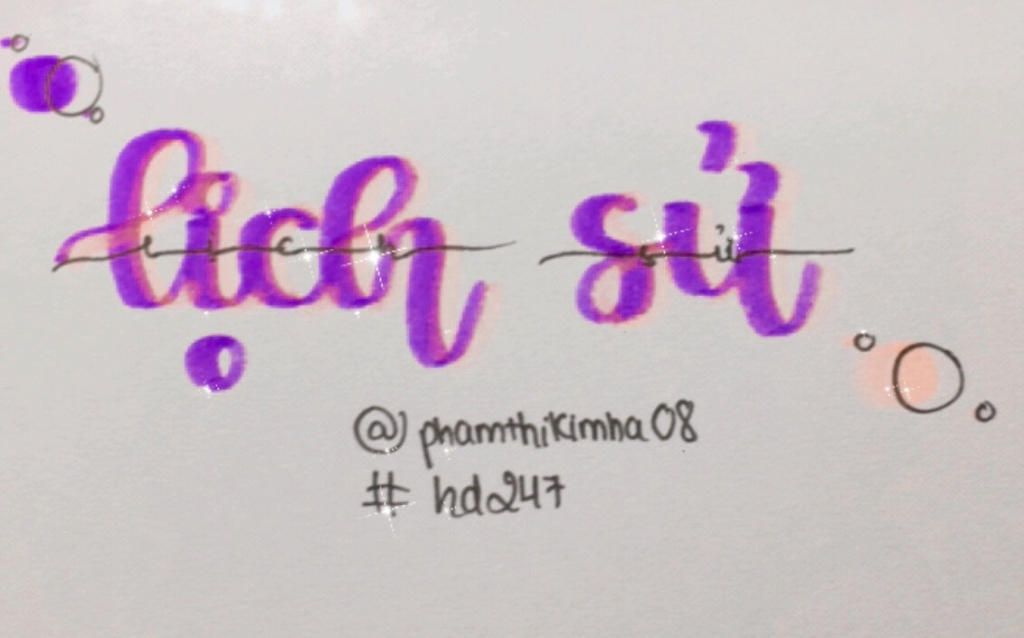 lịch sử
@phamthikimha08
# hd247